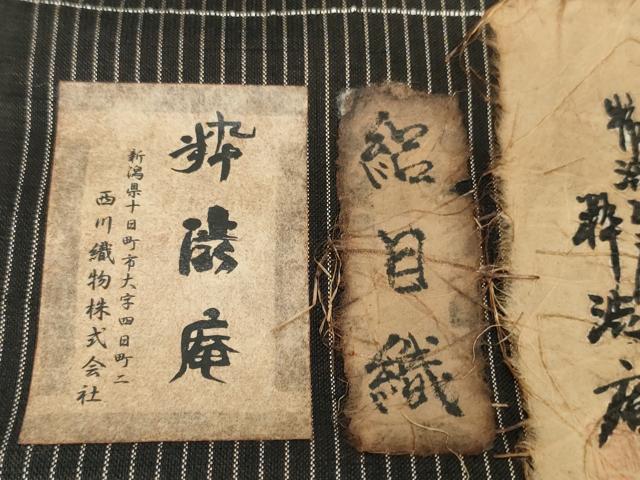 粋渋庵
絽目織
粋渋庵
新潟県十日町市大字四日町二
西川織物株式会社